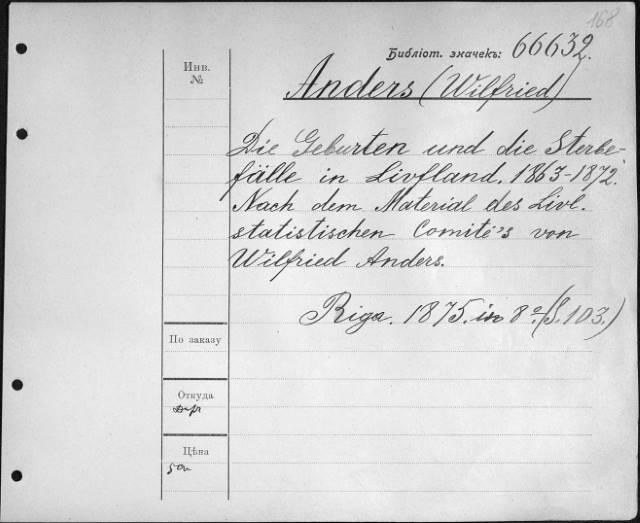 168
Библіот. значекъ: 66632.
Инв.
№
Anders (Wilfried)
Die Geburten und die Sterbe-
fälle in Livfland. 1863-1872.
Nach dem Material des Livl.
statistischen Comité's von
Wilfried Anders.
Riga. 1875. in 8º. (S. 103.)
По заказу
Откуда
Цѣна